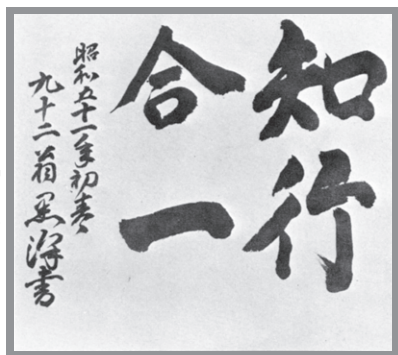 知行
合一
昭和五十一年初春
九十二翁 書